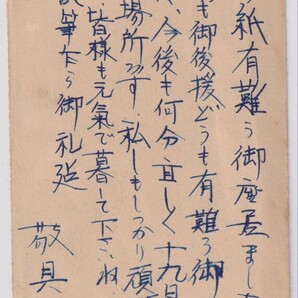 紙有難う御座居ました
も御後援どうも有難う御
、今後も何分宜しく十九日
場所ます。私もしっかり頑
皆様も元氣で暮して下さいね
筆乍ら御礼迄
敬具